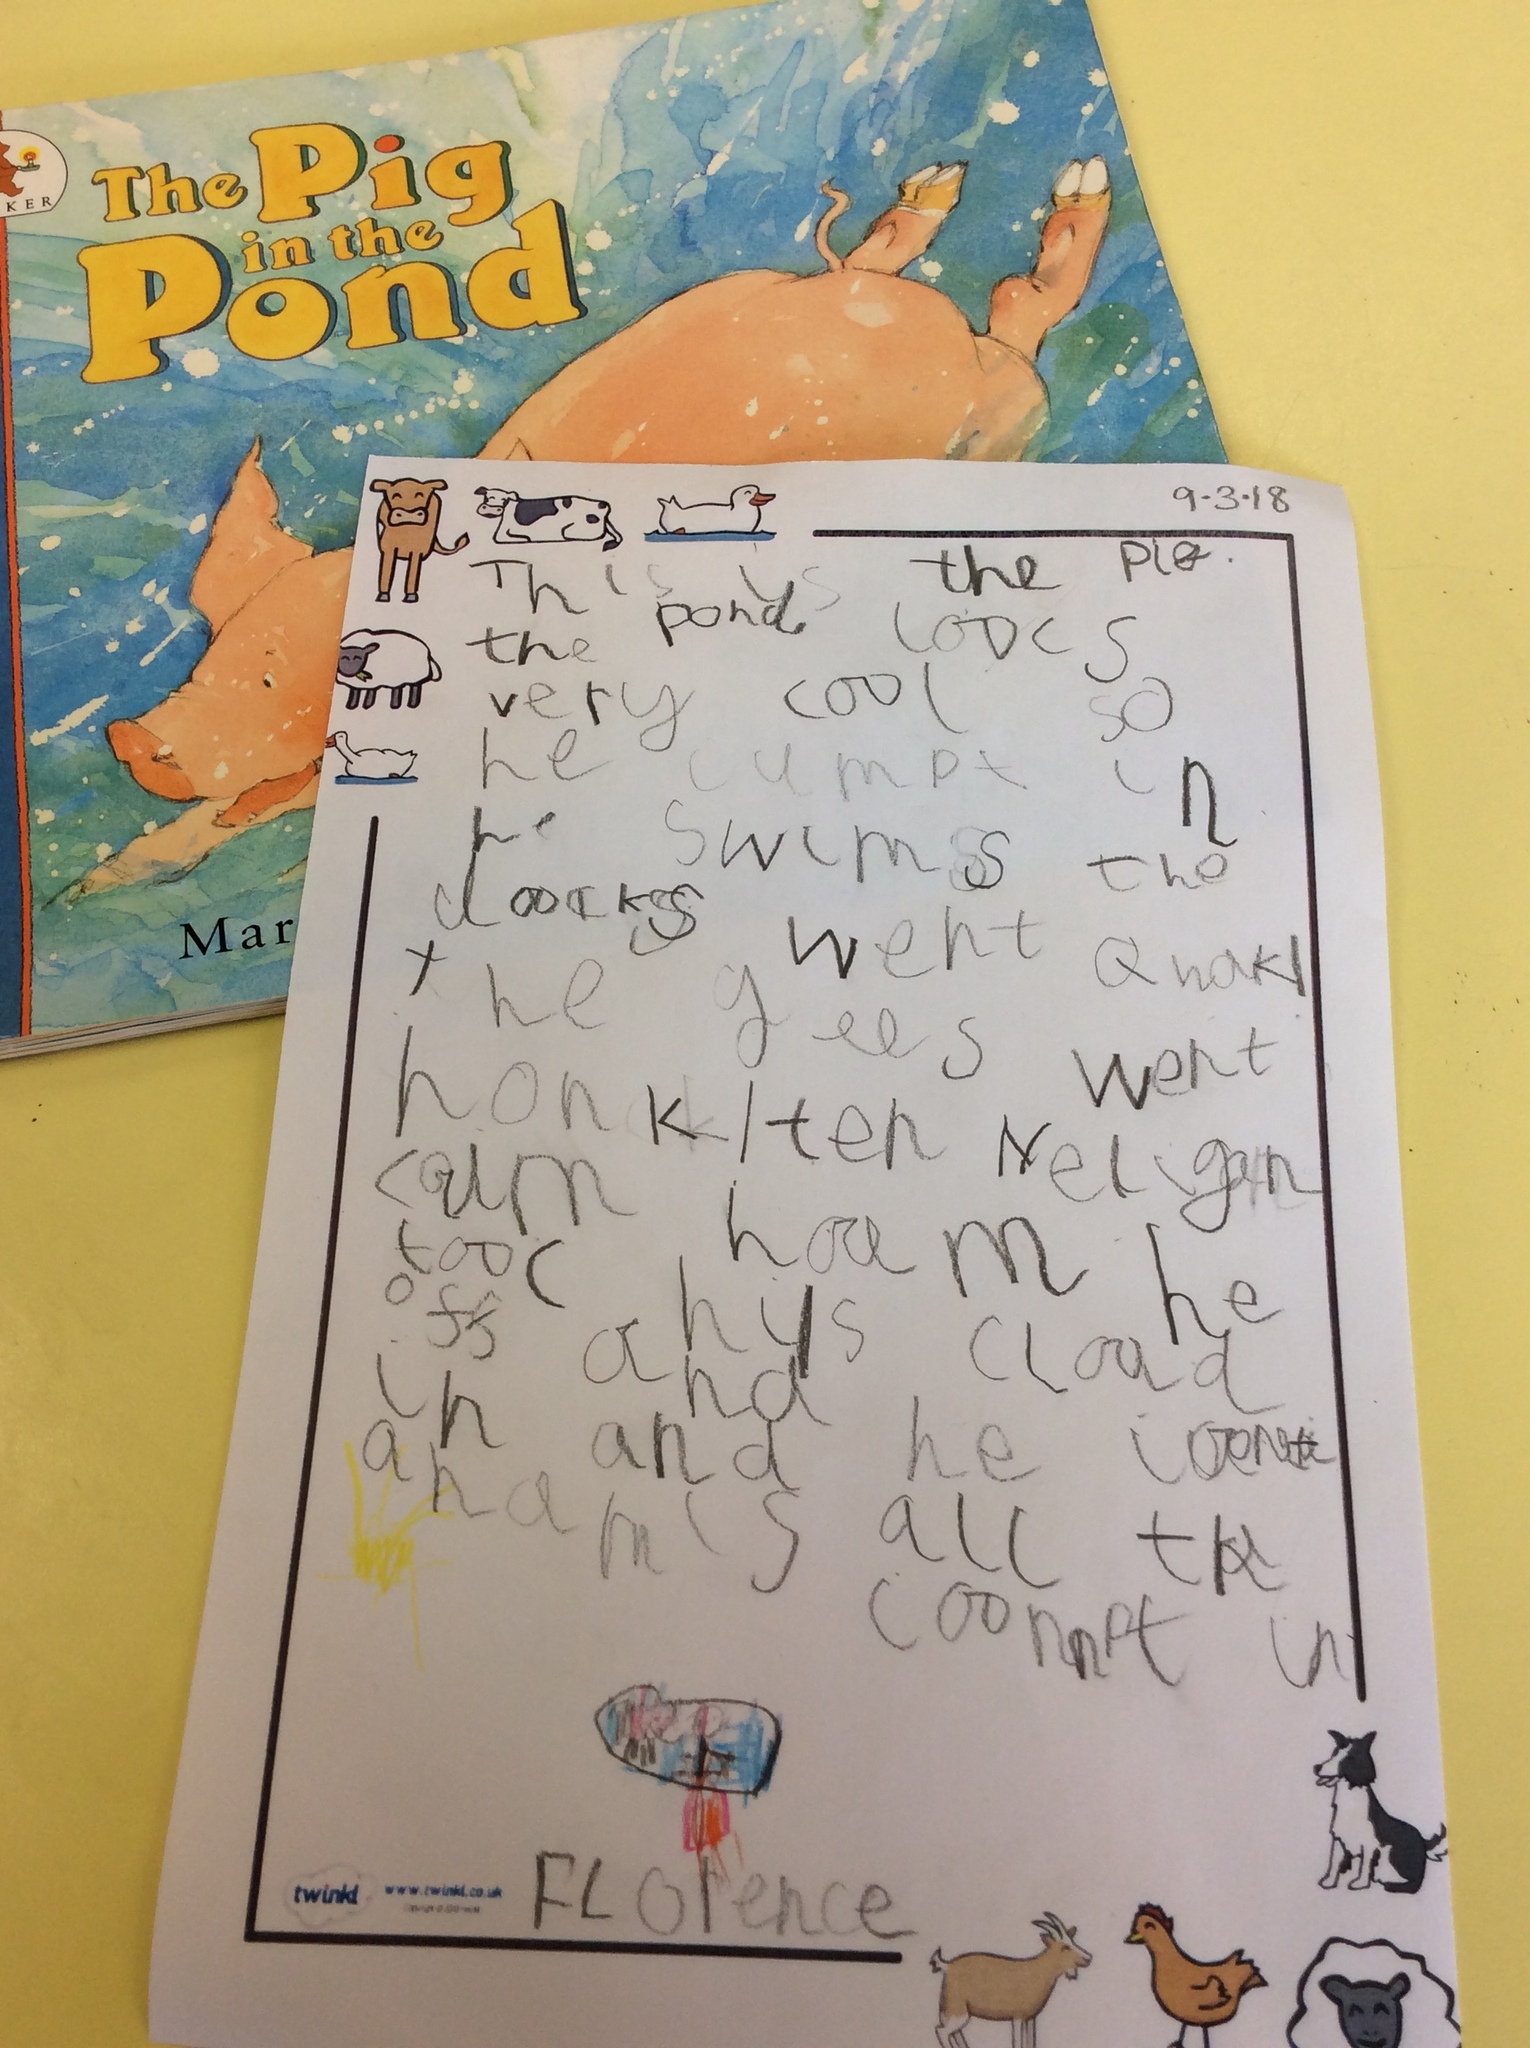 The Pig
in the
Pond
KER
Mar
9-3-18
This is the pig.
the pond loocs
very cool so
he jumpt in
he swims the
doocks went Quak
the gees went
honk ten Neligan
caim hoam he
tooc his
off and cload
in and he
all the
in
FLorence
twinkl
www.twinkl.co.uk